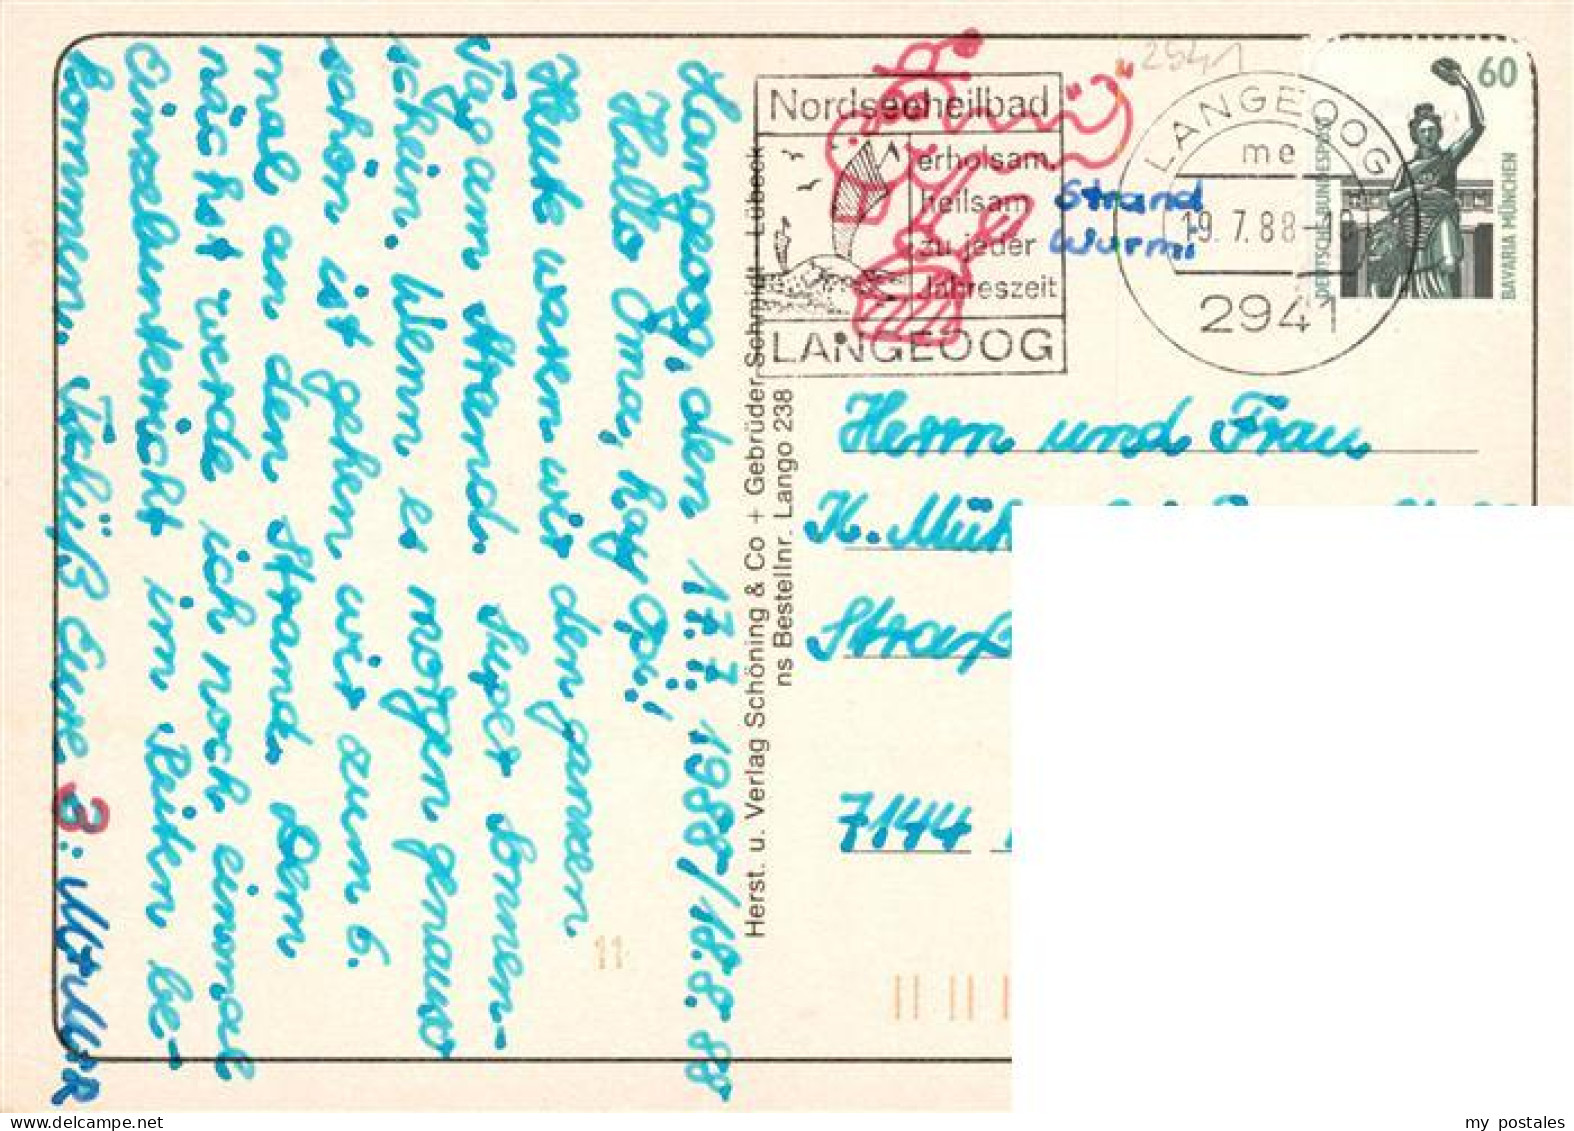 Langeoog, den 17.7.1988/18.8.88
Hallo Oma, hay Opi!
Heute waren wir den ganzen
Tag am Strand. Super Sonnen-
schein. Wenn es morgen genauso
schön ist gehen wir zum 6.
mal an den Strand. Dem
nächst werde ich noch einmal
Einzelunterricht im Reiten be-
kommen. Tschüß Eure 3: M+M+R
Herst. u. Verlag Schöning & Co + Gebrüder Schmidt Lübeck
ns Bestellnr. Lango 238
2941
Nordseeheilbad
erholsam
heilsam
zu jeder
Jahreszeit
LANGEOOG
Strand
Wurmi
LANGEOOG
me
19.7.88-18
2941
60
DEUTSCHE BUNDESPOST
BAVARIA MÜNCHEN
Herrn und Frau
K. Müh
Straß
7144
11
my postales